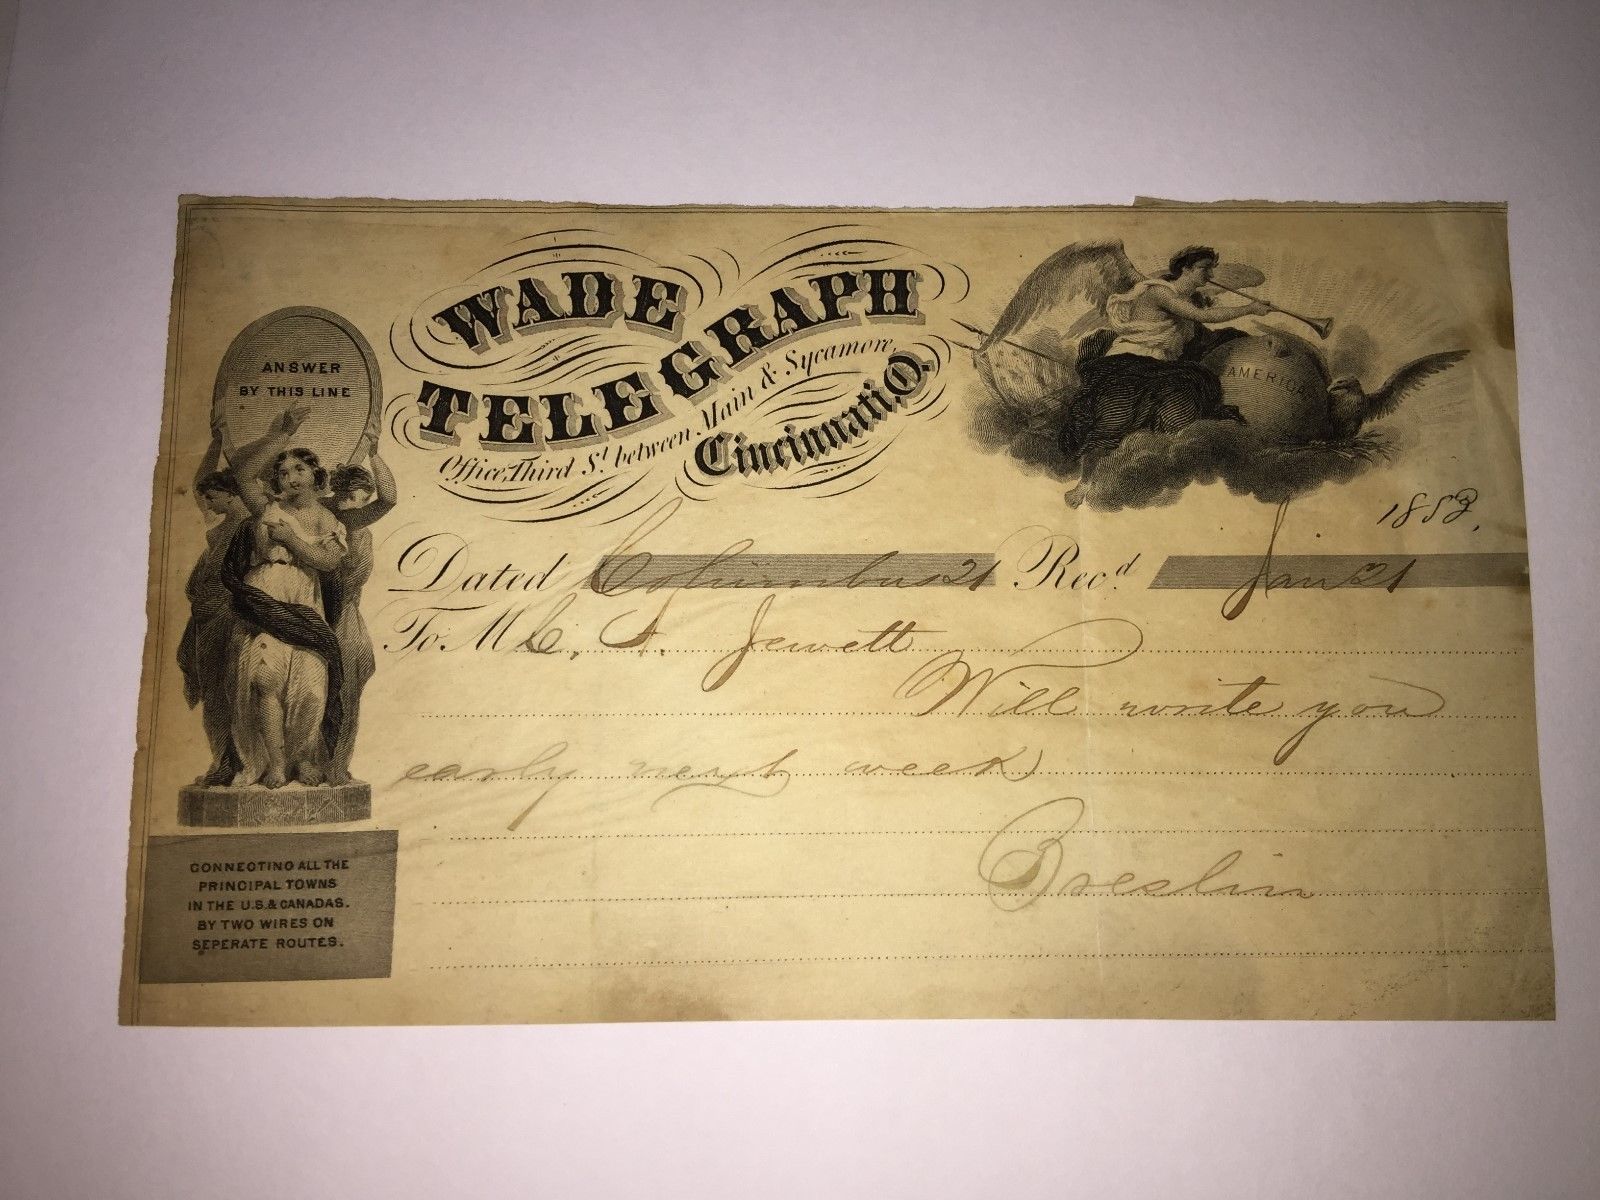 WADE
TELEGRAPH
Office, Third St. between Main & Sycamore,
Cincinnati, O.
ANSWER
BY THIS LINE
AMERICA
1853,
Dated Columbus 21 Rec'd Jan 21
To. M C. Jewett
Will write you
early next week
Breslin
CONNECTING ALL THE
PRINCIPAL TOWNS
IN THE U.S. & CANADAS.
BY TWO WIRES ON
SEPERATE ROUTES.